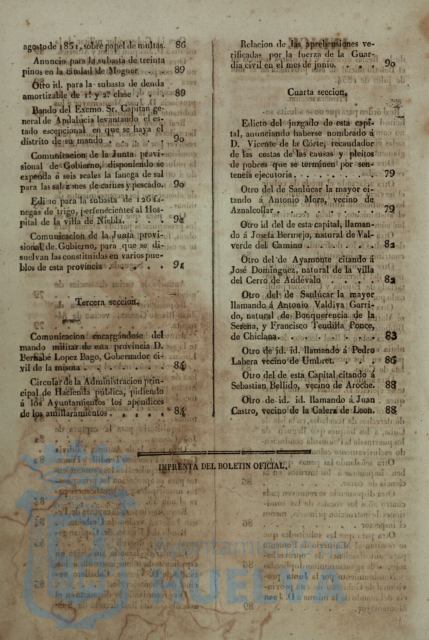 agosto de 1851, sobre papel de multas. 86
Anuncio para la subasta de treinta
pinos en la ciudad de Moguer . . 89
Otro id. para la subasta de deuda
amortizable de 1ª y 2ª clase . . 89
Bando del Excmo. Sr. Capitan ge-
neral de Andalucia levantando el es-
tado escepcional en que se haya el
distrito de su mando . . . . 90
Comunicacion de la Junta provi-
sional de Gobierno, disponiendo se
expenda á seis reales la fanega de sal
para las salazones de carnes y pescado. 90
Edicto para la subasta de 126 fa-
negas de trigo, pertenecientes al Hos-
pital de la villa de Niebla. . . 91
Comunicacion de la Junta provi-
sional de Gobierno, para que se di-
suelvan las constituidas en varios pue-
blos de esta provincia . . . . 91
Tercera seccion.
Comunicacion encargándose del
mando militar de esta provincia D.
Bernabé Lopez Bago, Gobernador ci-
vil de la misma . . . . . 84
Circular de la Administracion prin-
cipal de Hacienda pública, pidiendo
á los Ayuntamientos los apéndices
de los amillaramientos. . . . 84
Relacion de las aprehensiones ve-
rificadas por la fuerza de la Guar-
dia civil en el mes de junio. . . . 90
Cuarta seccion.
Edicto del juzgado de esta capi-
tal, anunciando haberse nombrado á
D. Vicente de la Córte, recaudador
de las costas de las causas y pleitos
de pobres que se terminen por sen-
tencia ejecutoria. . . . . . 79
Otro del de Sanlúcar la mayor ci-
tando á Antonio Mora, vecino de
Aznalcollar . . . . . . 79
Otro id del de esta capital, llaman-
do á Josefa Bermejo, natural de Val-
verde del Camino . . . . . 82
Otro del de Ayamonte citando á
José Dominguez, natural de la villa
del Cerro de Andévalo . . . . 82
Otro del de Sanlúcar la mayor
llamando á Antonio Valdiva Garri-
do, natural de Bonquerencia de la
Serena, y Francisco Teudiña Ponce,
de Chiclana. . . . . . . 83
Otro de id. id. llamando á Pedro
Labera vecino de Umbret. . . . 86
Otro del de esta Capital citando á
Sebastian Bellido, vecino de Aroche. 88
Otro de id. id. llamando á Juan
Castro, vecino de la Galera de Leon. 88
IMPRENTA DEL BOLETIN OFICIAL.
Ayuntamiento de
HUELVA